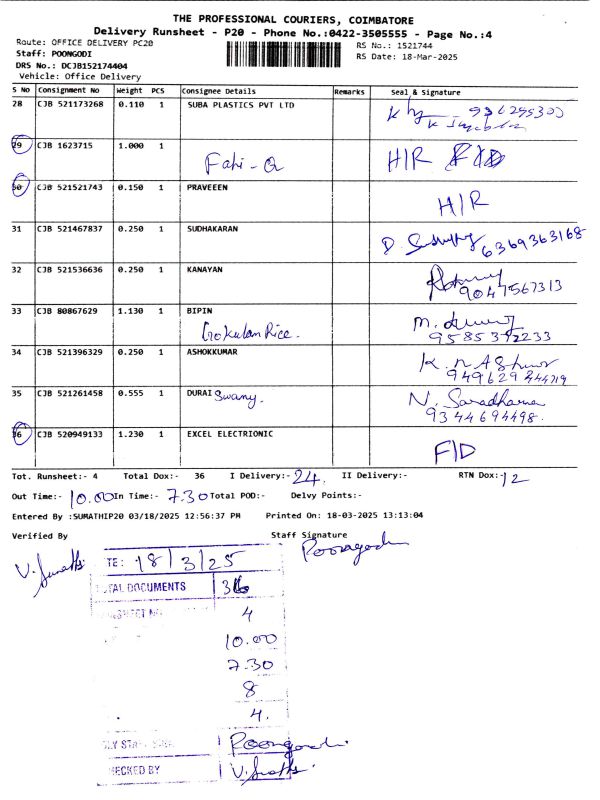 THE PROFESSIONAL COURIERS, COIMBATORE
Delivery Runsheet - P20 - Phone No.:0422-3505555 - Page No.:4
Route: OFFICE DELIVERY PC20
Staff: POONGODI
DRS No.: DCJB152174404
Vehicle: Office Delivery
RS No.: 1521744
RS Date: 18-Mar-2025
S No Consignment No Weight PCS Consignee Details Remarks Seal & Signature
28 CJB 521173268 0.110 1 SUBA PLASTICS PVT LTD
29 CJB 1623715 1.000 1 H/R
30 CJB 521521743 0.150 1 PRAVEEEN H/R
31 CJB 521467837 0.250 1 SUDHAKARAN D 6369363168
32 CJB 521536636 0.250 1 KANAYAN 9047567313
33 CJB 80867629 1.130 1 BIPIN
Gokulan Rice.
34 CJB 521396329 0.250 1 ASHOKKUMAR
35 CJB 521261458 0.555 1 DURAI Swamy. N. Saradharan
9344694498.
36 CJB 520949133 1.230 1 EXCEL ELECTRIONIC F/D
Tot. Runsheet:- 4 Total Dox:- 36 I Delivery:- 24. II Delivery:- RTN Dox:- 12
Out Time:- 10.00 In Time:- 7.30 Total POD:- Delvy Points:-
Entered By :SUMATHIP20 03/18/2025 12:56:37 PM Printed On: 18-03-2025 13:13:04
Verified By Staff Signature
V. Sumathi Poongodi
TE: 18/3/25
TAL DOCUMENTS 36
4
10.00
7.30
8
4.
Poongodi
HECKED BY V. Sumathi